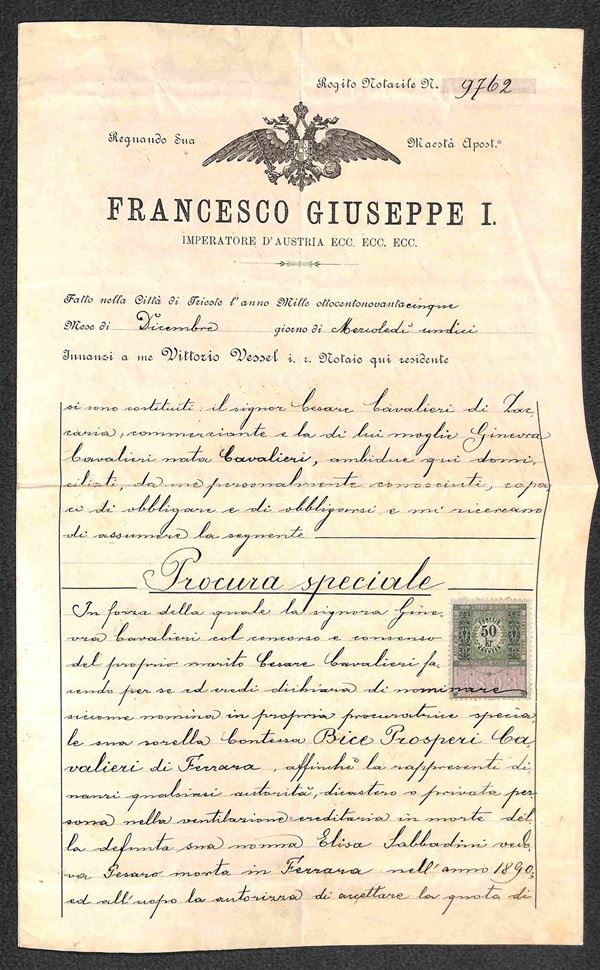 Rogito Notarile N. 9762
Regnando Sua Maestà Apost.ª
FRANCESCO GIUSEPPE I.
IMPERATORE D'AUSTRIA ECC. ECC. ECC.
Fatto nella Città di Trieste l'anno Mille ottocentonovantacinque
Mese di Dicembre giorno di Mercoledì undici
Innanzi a me Vittorio Vessel i. r. Notaio qui residente
si sono costituiti il signor Cesare Cavalieri di Zac-
caria, commerciante e la di lui moglie Ginevra
Cavalieri nata Cavalieri, ambidue qui domi-
ciliati, da me personalmente conosciuti, capa
ci di obbligare e di obbligarsi e mi ricercano
di assumere la seguente
Procura speciale
In forza della quale la signora Gine-
vra Cavalieri col concorso e consenso
del proprio marito Cesare Cavalieri fa-
cendo per se ed eredi dichiara di nominare
siccome nomina in propria procuratrice specia
le sua sorella Contessa Bice Prosperi Ca-
valieri di Ferrara, affinchè la rappresenti di-
nanzi qualsiasi autorità, dicastero o privata per
sona nella ventilazione ereditaria in morte del-
la defunta sua nonna Elisa Sabbadini vedo-
va Pesaro morta in Ferrara nell'anno 1890,
ed all'uopo la autorizza di accettare la quota di
50
kr
1893